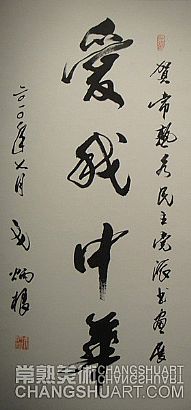 贺常熟各民主党派书画展
爱我中华
二〇一〇年七月
炳根
常熟美術
CHANGSHUART